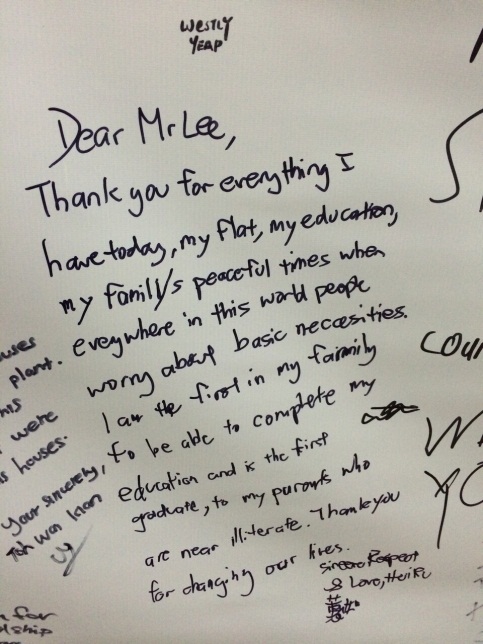 WESTLY
YEAP
Dear Mr Lee,
Thank you for everything I
have today, my flat, my education,
my family's peaceful times when
everywhere in this world people
worry about basic neccesities.
I am the first in my family
to be able to complete my
education and is the first
graduate, to my parents who
are near illiterate. Thank you
for changing our lives.
Sincere Respect
& Love,
plant.
were
houses.
Your sincerely,